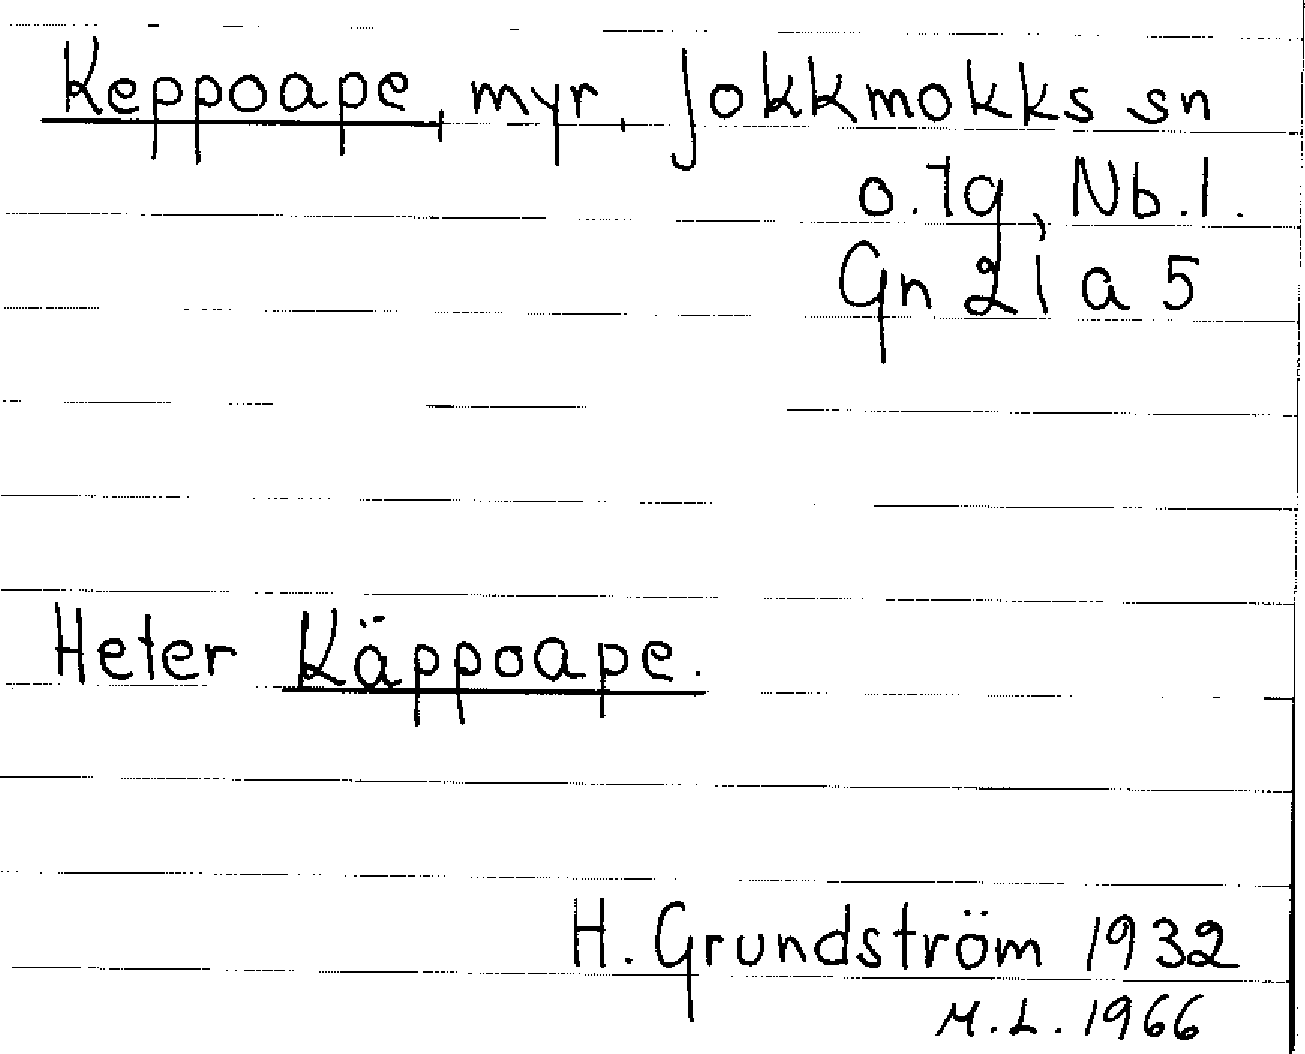 Keppoape, myr, Jokkmokks sn
o. lg, Nb. l.
Gn 21 a 5
Heter Käppoape.
H. Grundström 1932
M.L. 1966